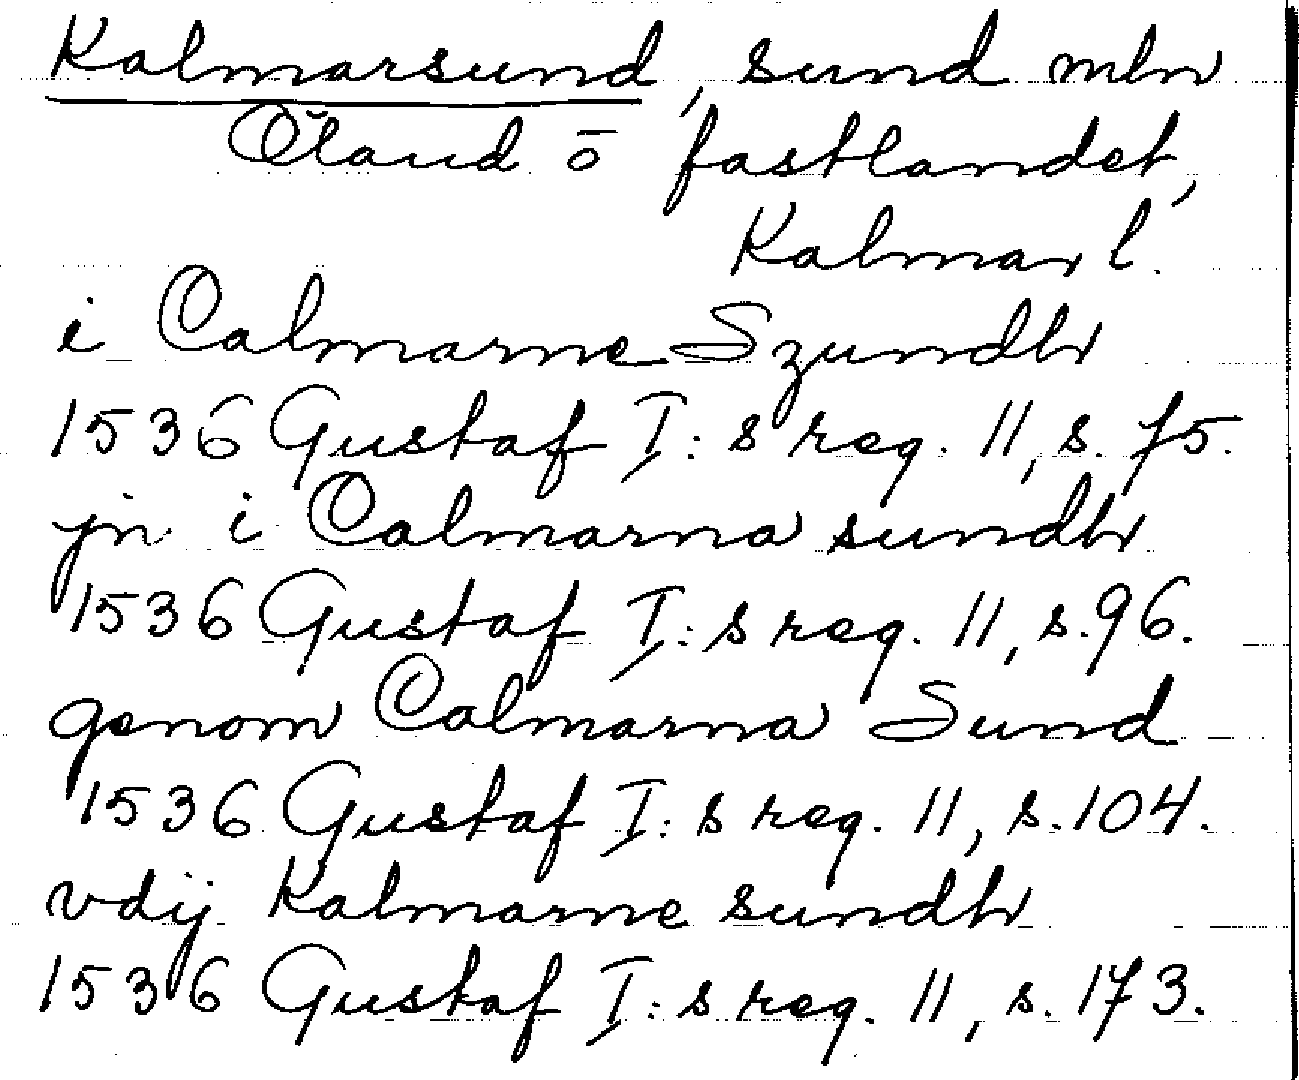 Kalmarsund, sund mln
Öland ō fastlandet,
Kalmar l.
i Calmarne Szundh
1536 Gustaf I:s reg. 11, s. 75.
jn i Calmarna sundh
1536 Gustaf I:s reg. 11, s. 96.
genom Calmarna Sund
1536 Gustaf I:s reg. 11, s. 104.
vdij Kalmarne sundh
1536 Gustaf I:s reg. 11, s. 173.